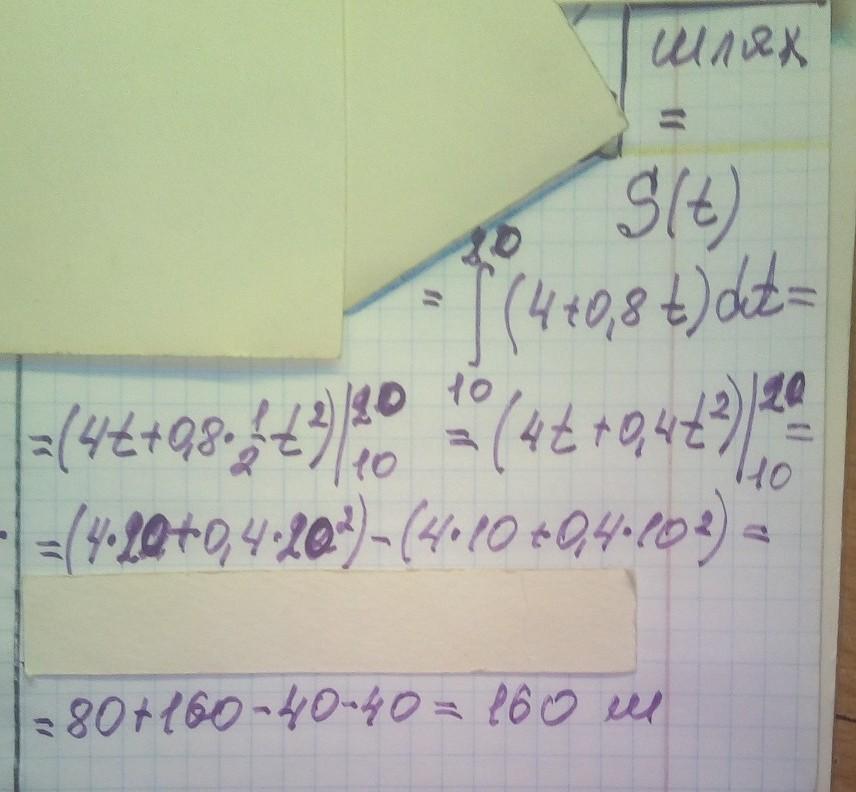 шлях
=
S(t)
= ∫₁₀²⁰ (4+0,8t)dt =
=(4t+0,8·1/2t²)|₁₀²⁰ = (4t+0,4t²)|₁₀²⁰ =
=(4·20+0,4·20²)-(4·10+0,4·10²) =
= 80+160-40-40 = 160 м